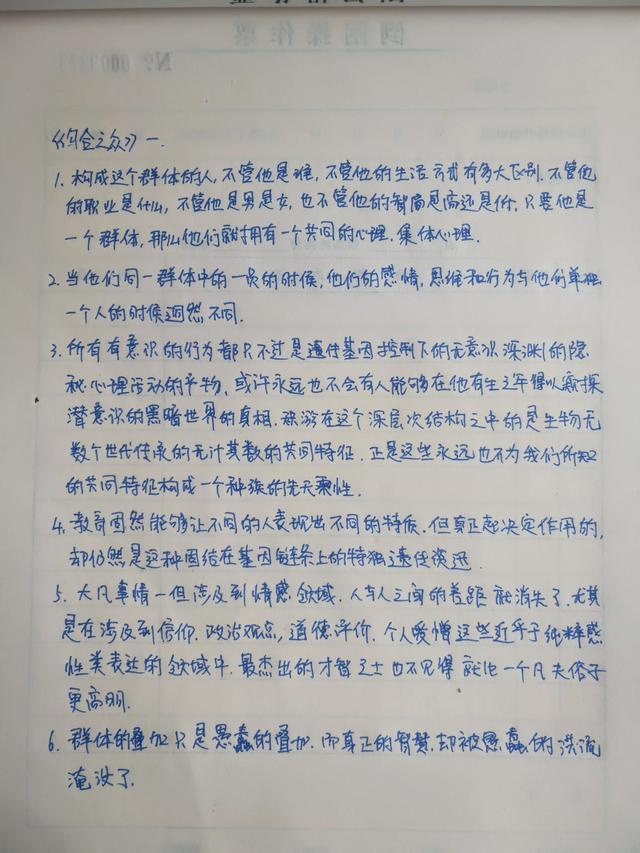 倒闸操作票
《乌合之众》一.
1. 构成这个群体的人, 不管他是谁, 不管他的生活方式有多大区别. 不管他
的职业是什么, 不管他是男是女, 也不管他的智商是高还是低. 只要他是
一个群体, 那么他们就拥有一个共同的心理. 集体心理.
2. 当他们同一群体中的一员的时候, 他们的感情, 思维和行为与他们单独
一个人的时候迥然不同.
3. 所有有意识的行为都只不过是遗传基因控制下的无意识深渊的隐
秘心理活动的产物, 或许永远也不会有人能够在他有生之年得以窥探
潜意识的黑暗世界的真相. 秘游在这个深层次结构之中的是生物无
数个世代传承的无计其数的共同特征. 正是这些永远也不为我们所知
的共同特征构成一个种族的先天禀性.
4. 教育固然能够让不同的人表现出不同的特质. 但真正起决定作用的,
却仍然是这种固结在基因链条上的特独遗传资迅.
5. 大凡事情一但涉及到情感领域. 人与人之间的差距就消失了. 尤其
是在涉及到信仰. 政治观点, 道德评价. 个人爱憎这些近乎于纯粹感
性类表达的领域中. 最杰出的才智之士也不见得就比一个凡夫俗子
更高明.
6. 群体的叠加只是愚蠢的叠加. 而真正的智慧却被愚蠢的洪流
淹没了.